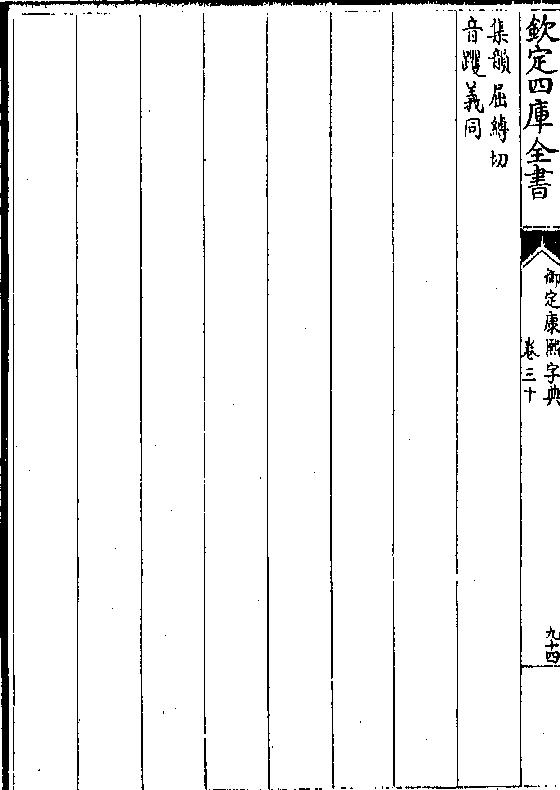 欽定四庫全書
御定康熙字典
卷三十
九十四
集韻屈縛切
音躩義同